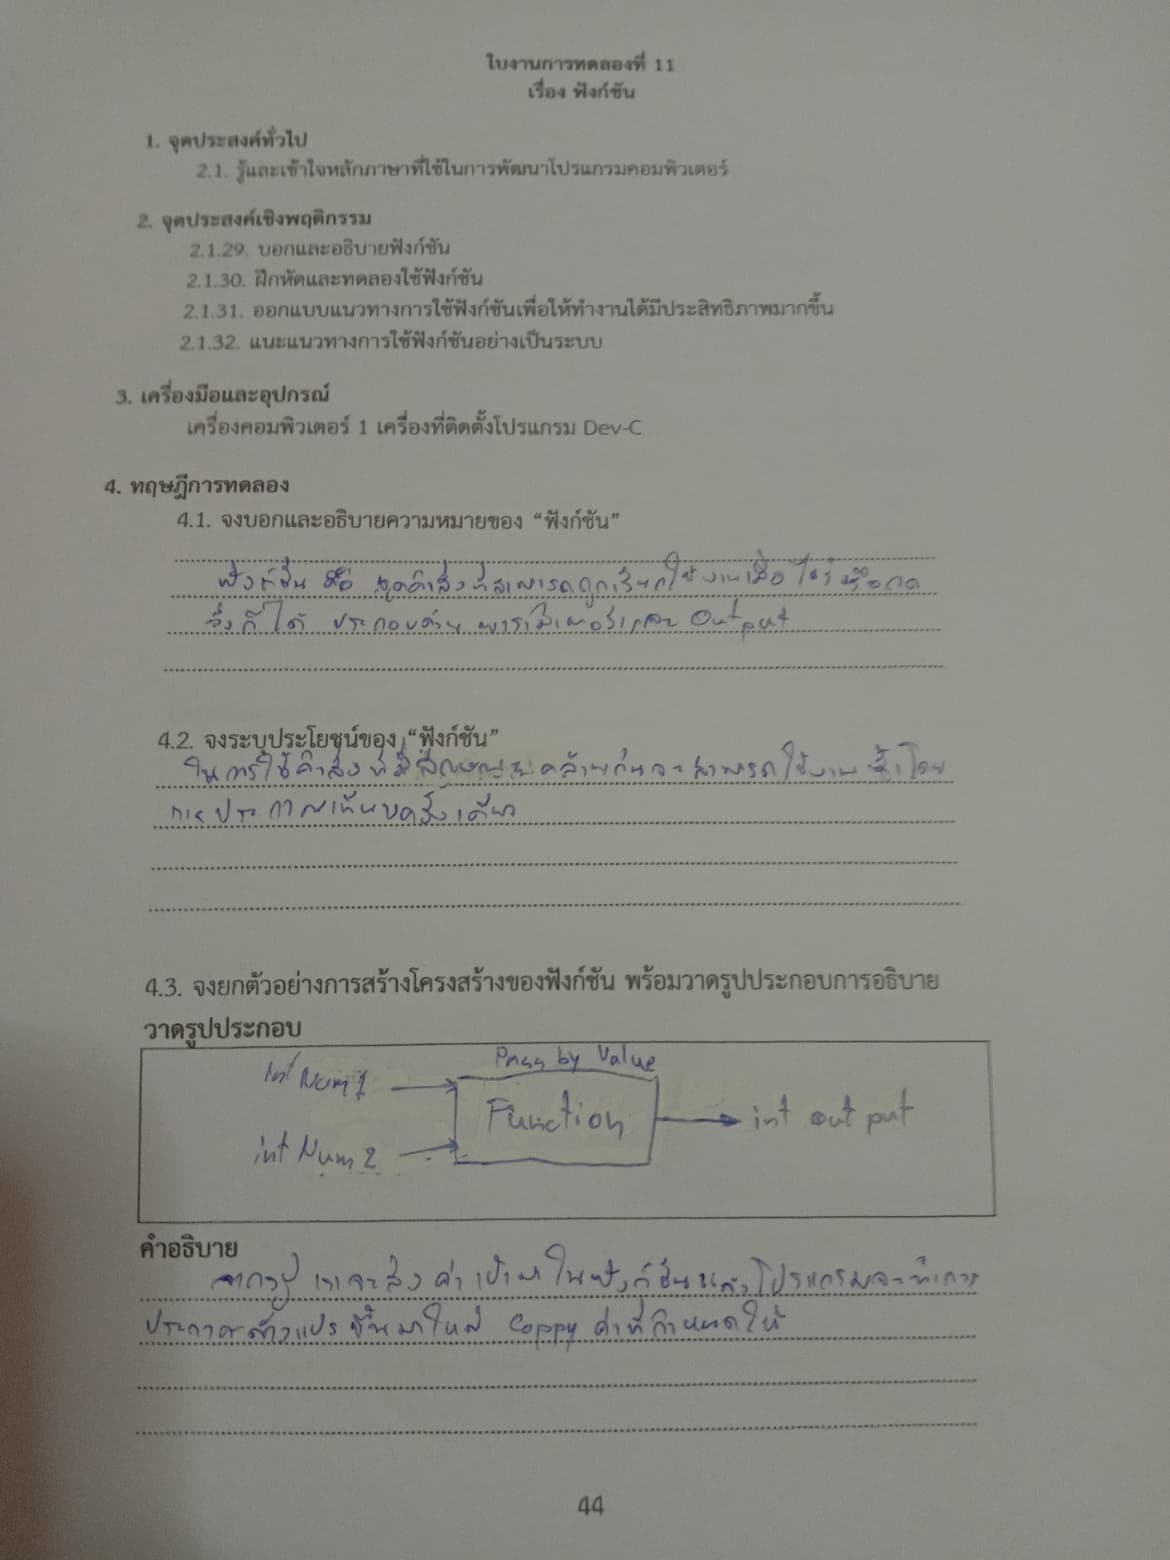 ใบงานการทดลองที่ 11
เรื่อง ฟังก์ชัน
1. จุดประสงค์ทั่วไป
2.1. รู้และเข้าใจหลักภาษาที่ใช้ในการพัฒนาโปรแกรมคอมพิวเตอร์
2. จุดประสงค์เชิงพฤติกรรม
2.1.29. บอกและอธิบายฟังก์ชัน
2.1.30. ฝึกหัดและทดลองใช้ฟังก์ชัน
2.1.31. ออกแบบแนวทางการใช้ฟังก์ชันเพื่อให้ทำงานได้มีประสิทธิภาพมากขึ้น
2.1.32. แนะแนวทางการใช้ฟังก์ชันอย่างเป็นระบบ
3. เครื่องมือและอุปกรณ์
เครื่องคอมพิวเตอร์ 1 เครื่องที่ติดตั้งโปรแกรม Dev-C
4. ทฤษฎีการทดลอง
4.1. จงบอกและอธิบายความหมายของ “ฟังก์ชัน”
ฟังก์ชั่น คือ ชุดคำสั่งที่สามารถถูกเรียกใช้งานเมื่อไหร่หรือกด
ครั้งก็ได้ ประกอบด้วย พารามิเตอร์และ Output
4.2. จงระบุประโยชน์ของ “ฟังก์ชัน”
ในการใช้คำสั่งที่มีลักษณะคล้ายกันจะสามารถใช้งานซ้ำโดย
การประกาศเพียงครั้งเดียว
4.3. จงยกตัวอย่างการสร้างโครงสร้างของฟังก์ชัน พร้อมวาดรูปประกอบการอธิบาย
วาดรูปประกอบ
Pass by Value
int Num1
Function
int output
int Num2
คำอธิบาย
จากรูป เราจะส่งค่าเข้ามาในฟังก์ชันแล้วโปรแกรมจะทำการ
ประกาศตัวแปรขึ้นมาใหม่ Coppy ค่าที่กำหนดให้
44